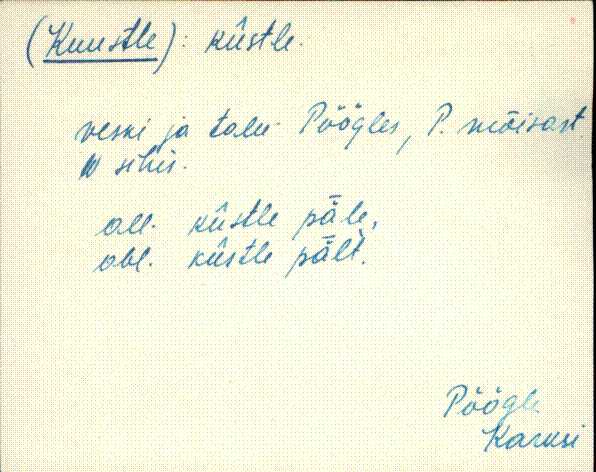 (Kuustle): kûstle.
veski ja talu Pöögles, P. mõisast
W sihis.
all. kûstle pǟle,
abl. kûstle pǟlt.
Pöögle
Karksi